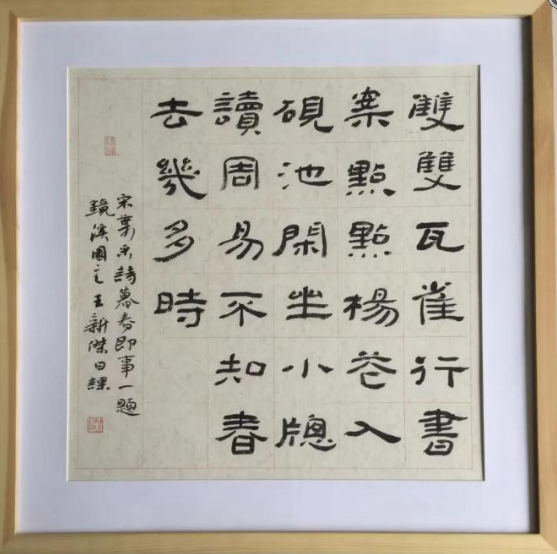 雙雙瓦雀行書
案點點楊花入
硯池閑坐小牕
讀周易不知春
去幾多時
宋葉采詩暮春即事一題
鏡溪園主王新傑日課